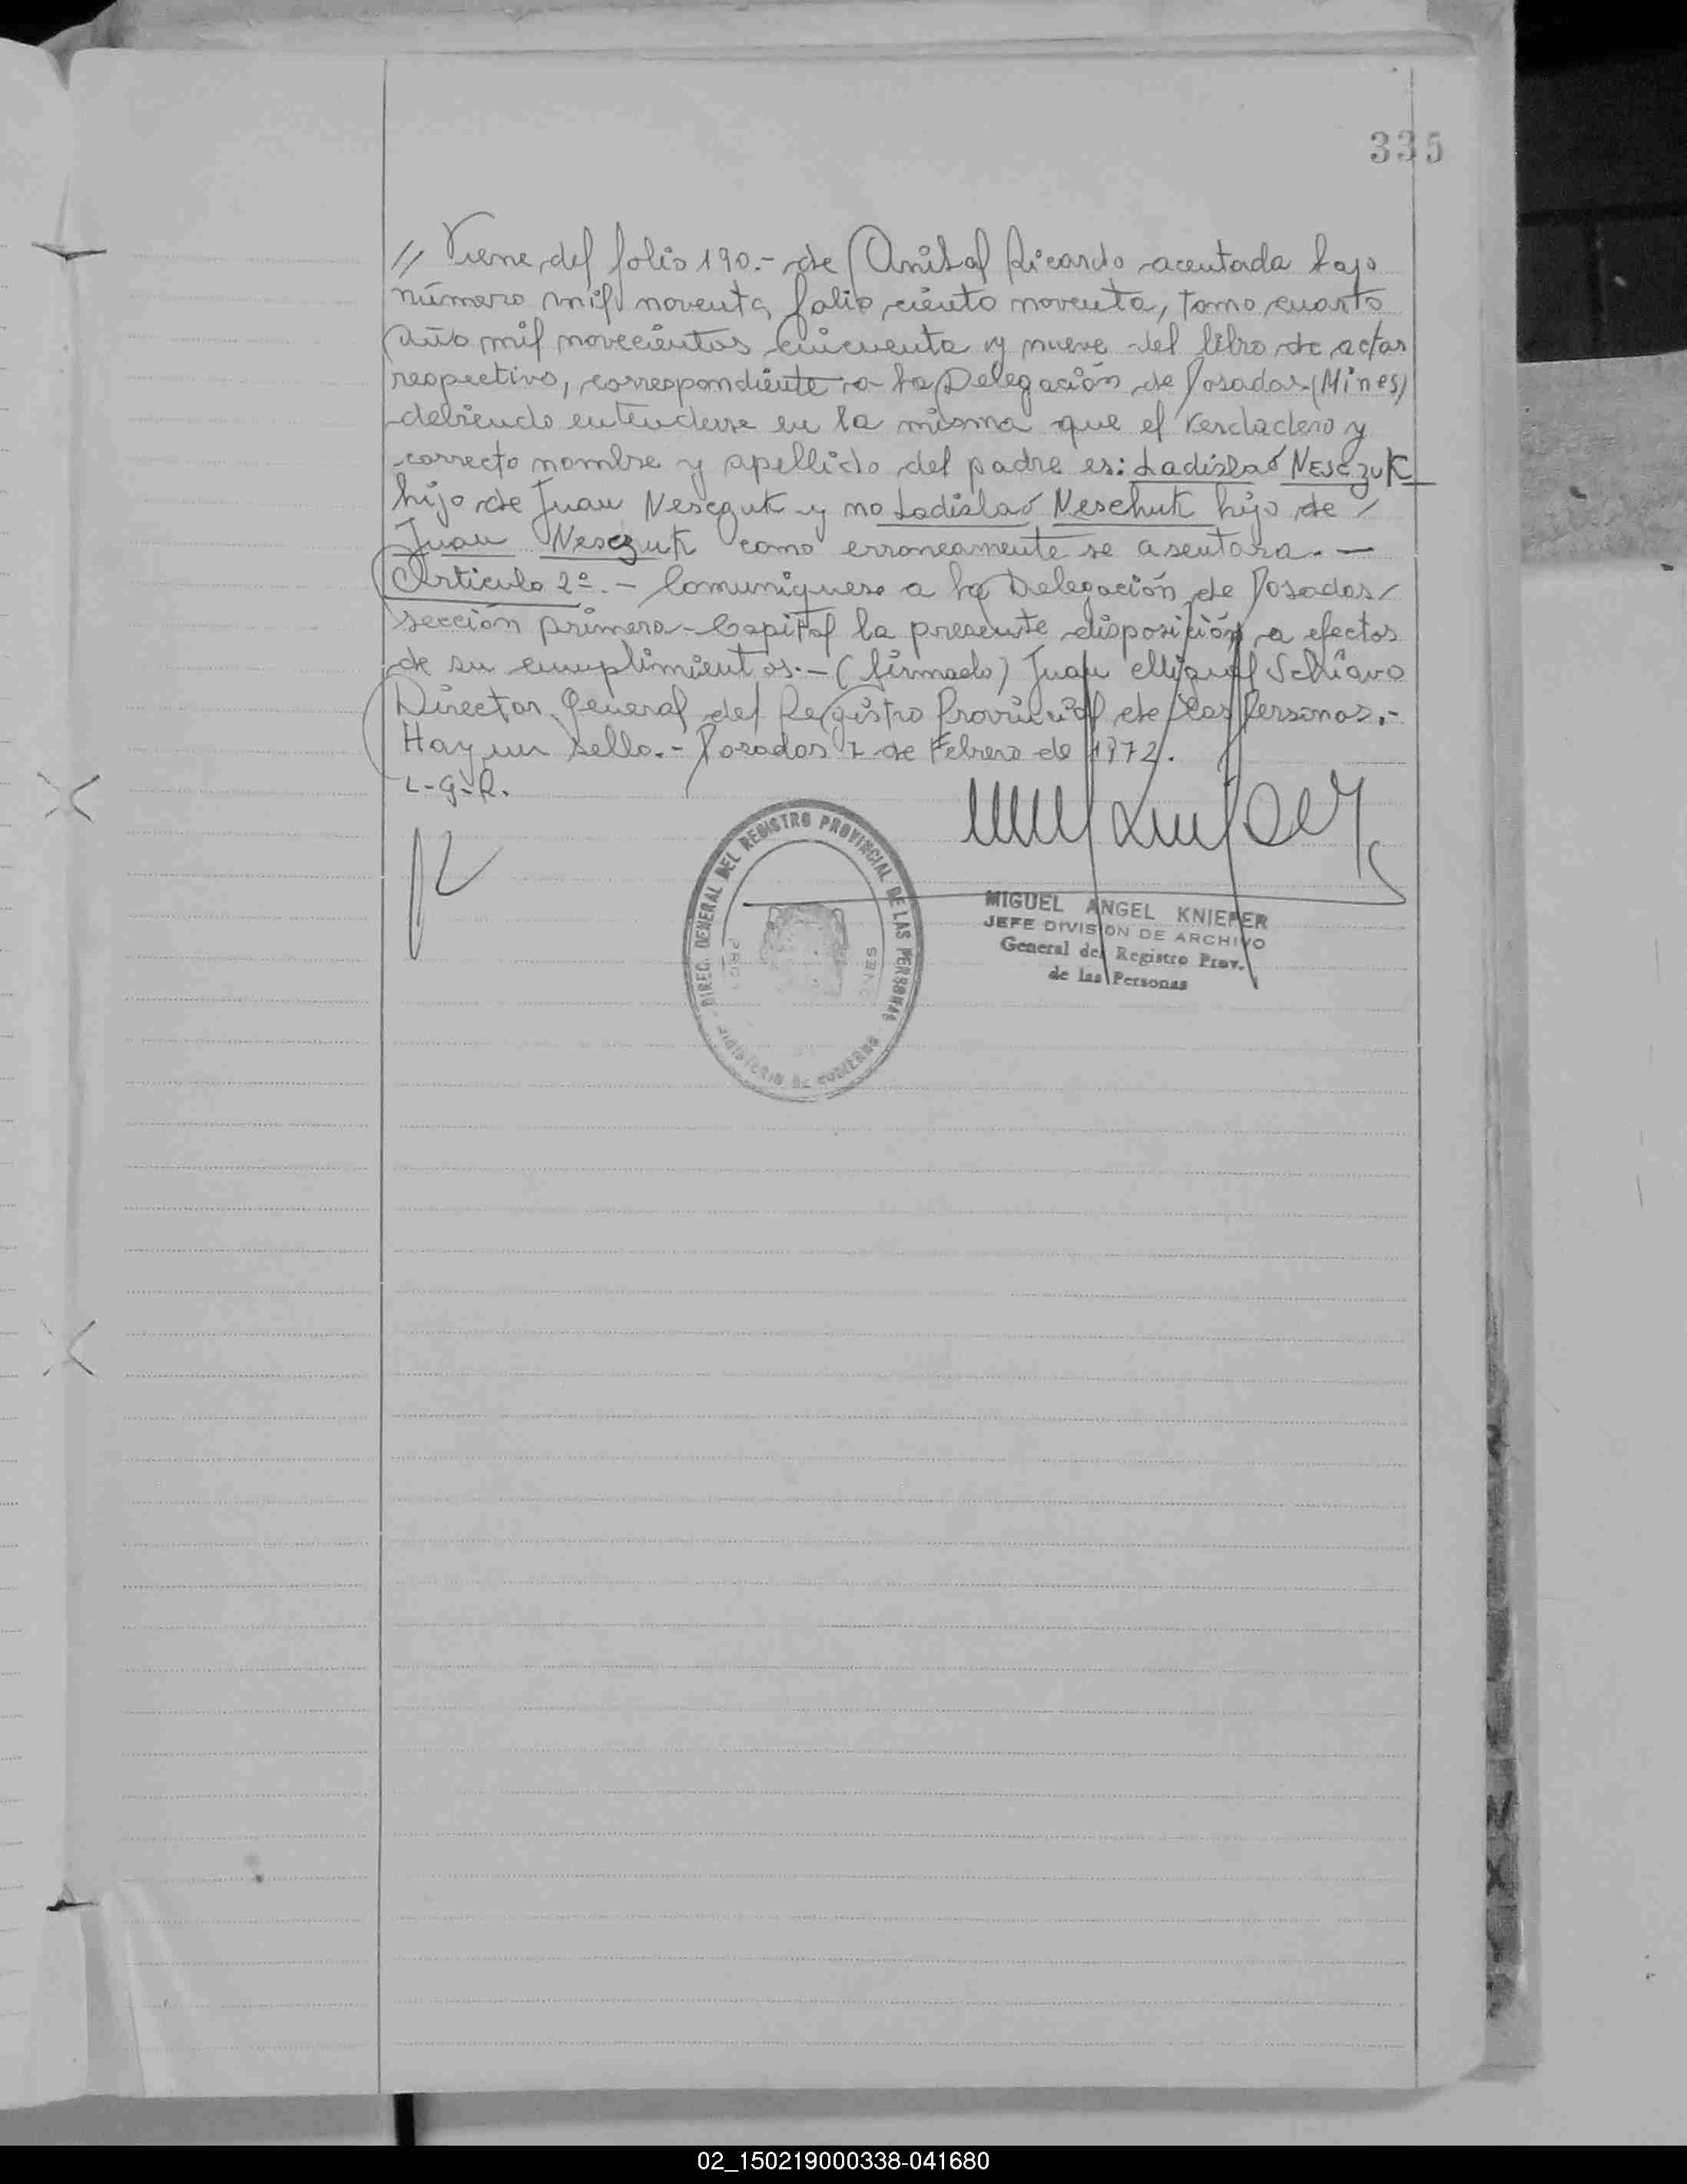 335
// Viene del folio 190.- de Anibal Ricardo acentada bajo
número mil noventa, folio ciento noventa, tomo cuarto
Año mil novecientos cincuenta y nueve del libro de actas
respectivo, correspondiente a la Delegación de Posadas (Mnes)
debiendo entenderse en la misma que el verdadero y
correcto nombre y apellido del padre es: Ladislaó NESCZUK
hijo de Juan Nesczuk y no Ladislaó Neschuk hijo de /
Juan Nesczuk como erroneamente se asentara. —
Artículo 2º.- Comuniquese a la Delegación de Posadas /
sección primera - Capital la presente disposición a efectos
de su cumplimientos.- (firmado) Juan Miguel Schiavo
Director General del Registro Provincial de las Personas.-
Hay un sello.- Posadas 7 de Febrero de 1972.
L-G-R.
DIREC. GENERAL DEL REGISTRO PROVINCIAL DE LAS PERSONAS
MINISTERIO DE GOBIERNO
MIGUEL ANGEL KNIEPER
JEFE DIVISION DE ARCHIVO
General del Registro Prov.
de las Personas
02_150219000338-041680